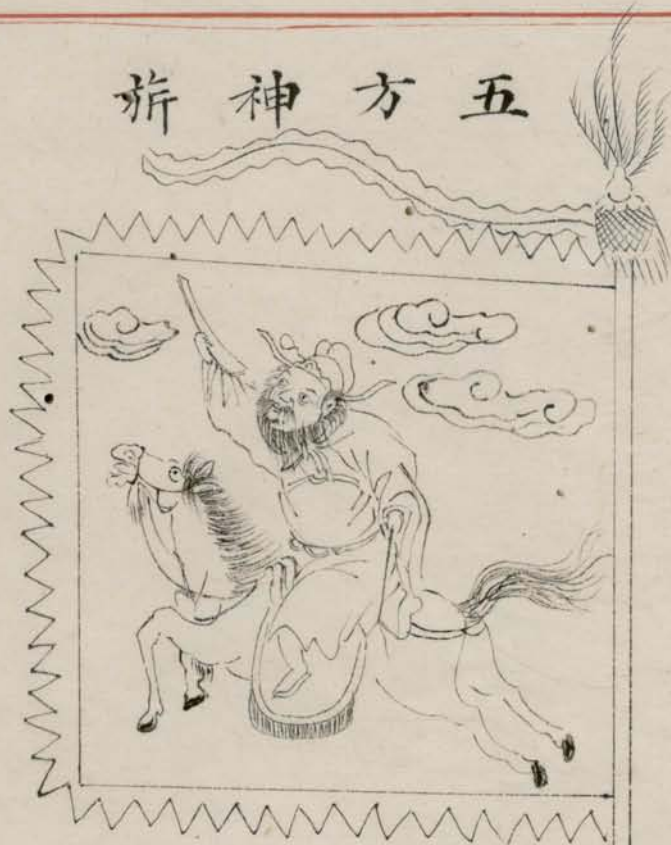 五方神旂